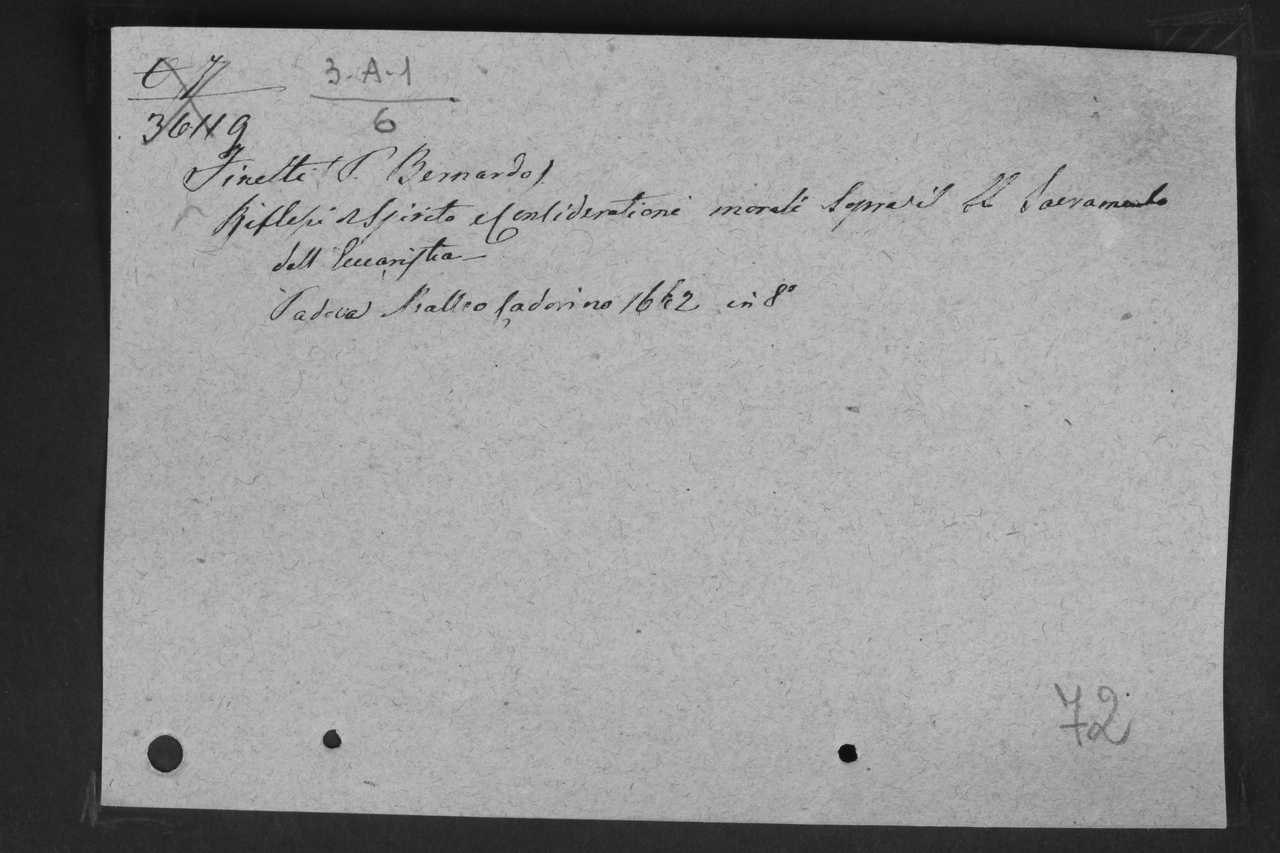 3-A-1
6
36119
Finetti (P. Bernardo)
Riflessi di Spirito e Considerationi morali Sopra il SS Sacramento
dell Eucaristia
Padova Matteo Cadorino 1642 in 8º
72